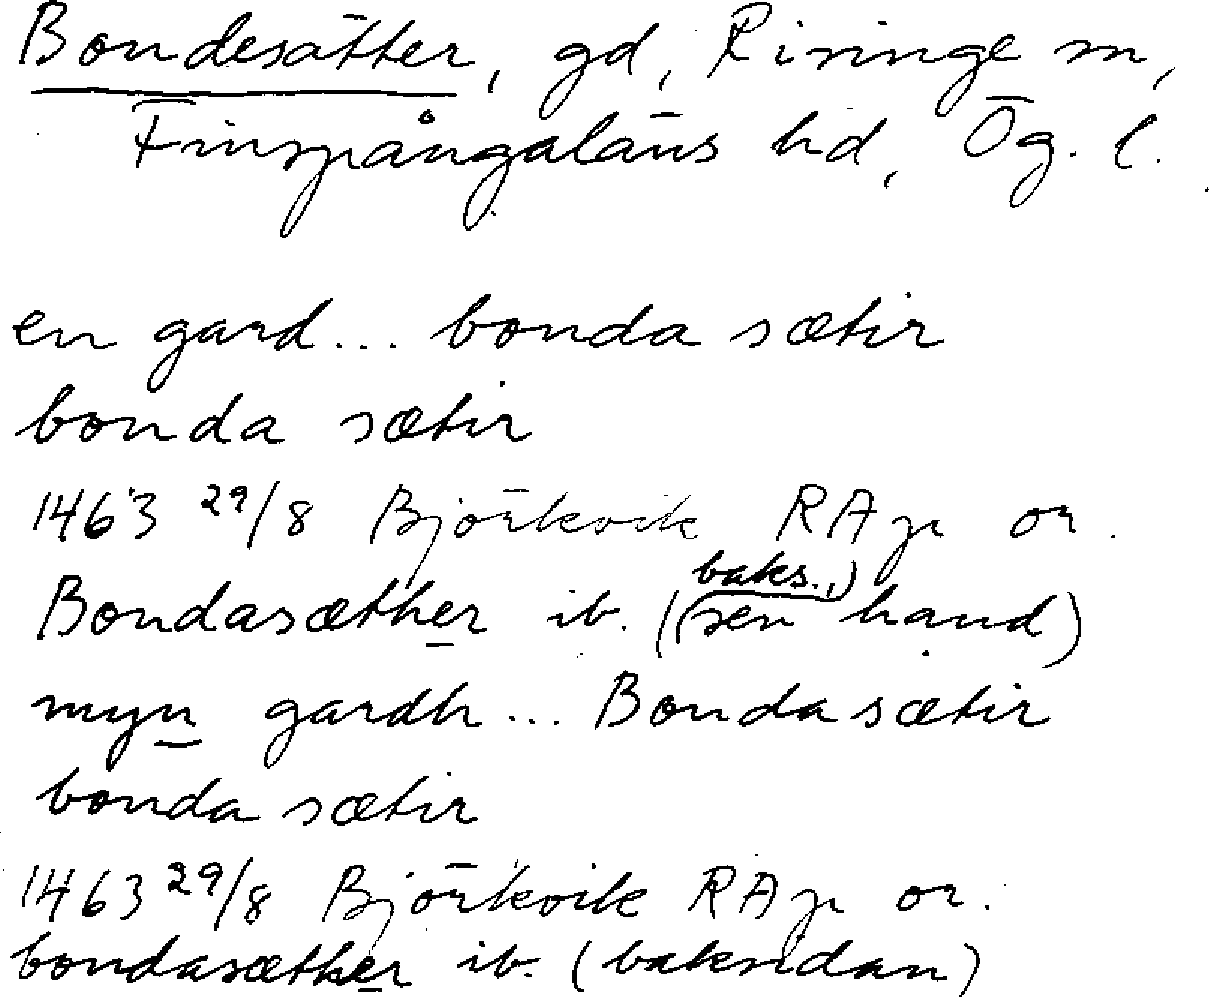 Bondesätter, gd, Risinge sn,
Finspångaläns hd, Ög. l.
en gard... bonda sætir
bonda sætir
1463 29/8 Björkvik RAp or.
Bondasæther ib. (baks., sen hand)
myn gardh... Bondasætir
bonda sætir
1463 29/8 Björkvik RAp or.
bondasæther ib. (baksidan)